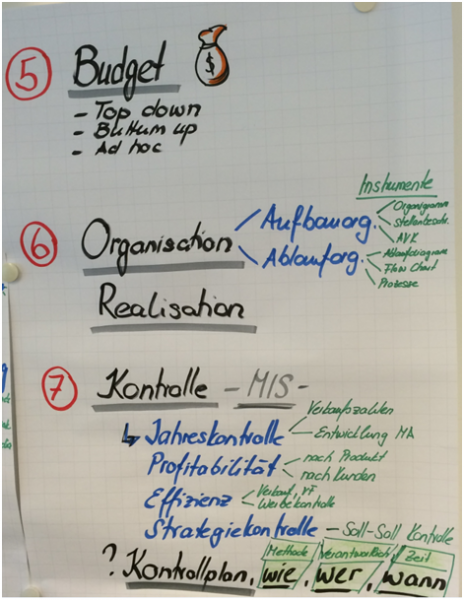 5 Budget $
- Top down
- Buttum up
- Ad hoc
Instrumente
6 Organisation
Aufbauorg.
Organigramm
Stellenbeschr.
AVK
Ablauforg.
Ablaufdiagramm
Flow Chart
Prozesse
Realisation
7 Kontrolle - MIS -
Jahreskontrolle
Verkaufszahlen
Entwicklung MA
Profitabilität
nach Produkt
nach Kunden
Effizienz
Verkauf, VF
Werbekontrolle
Strategiekontrolle - Soll-Soll Kontrolle
Methode Verantwortlich Zeit
? Kontrollplan, wie, wer, wann